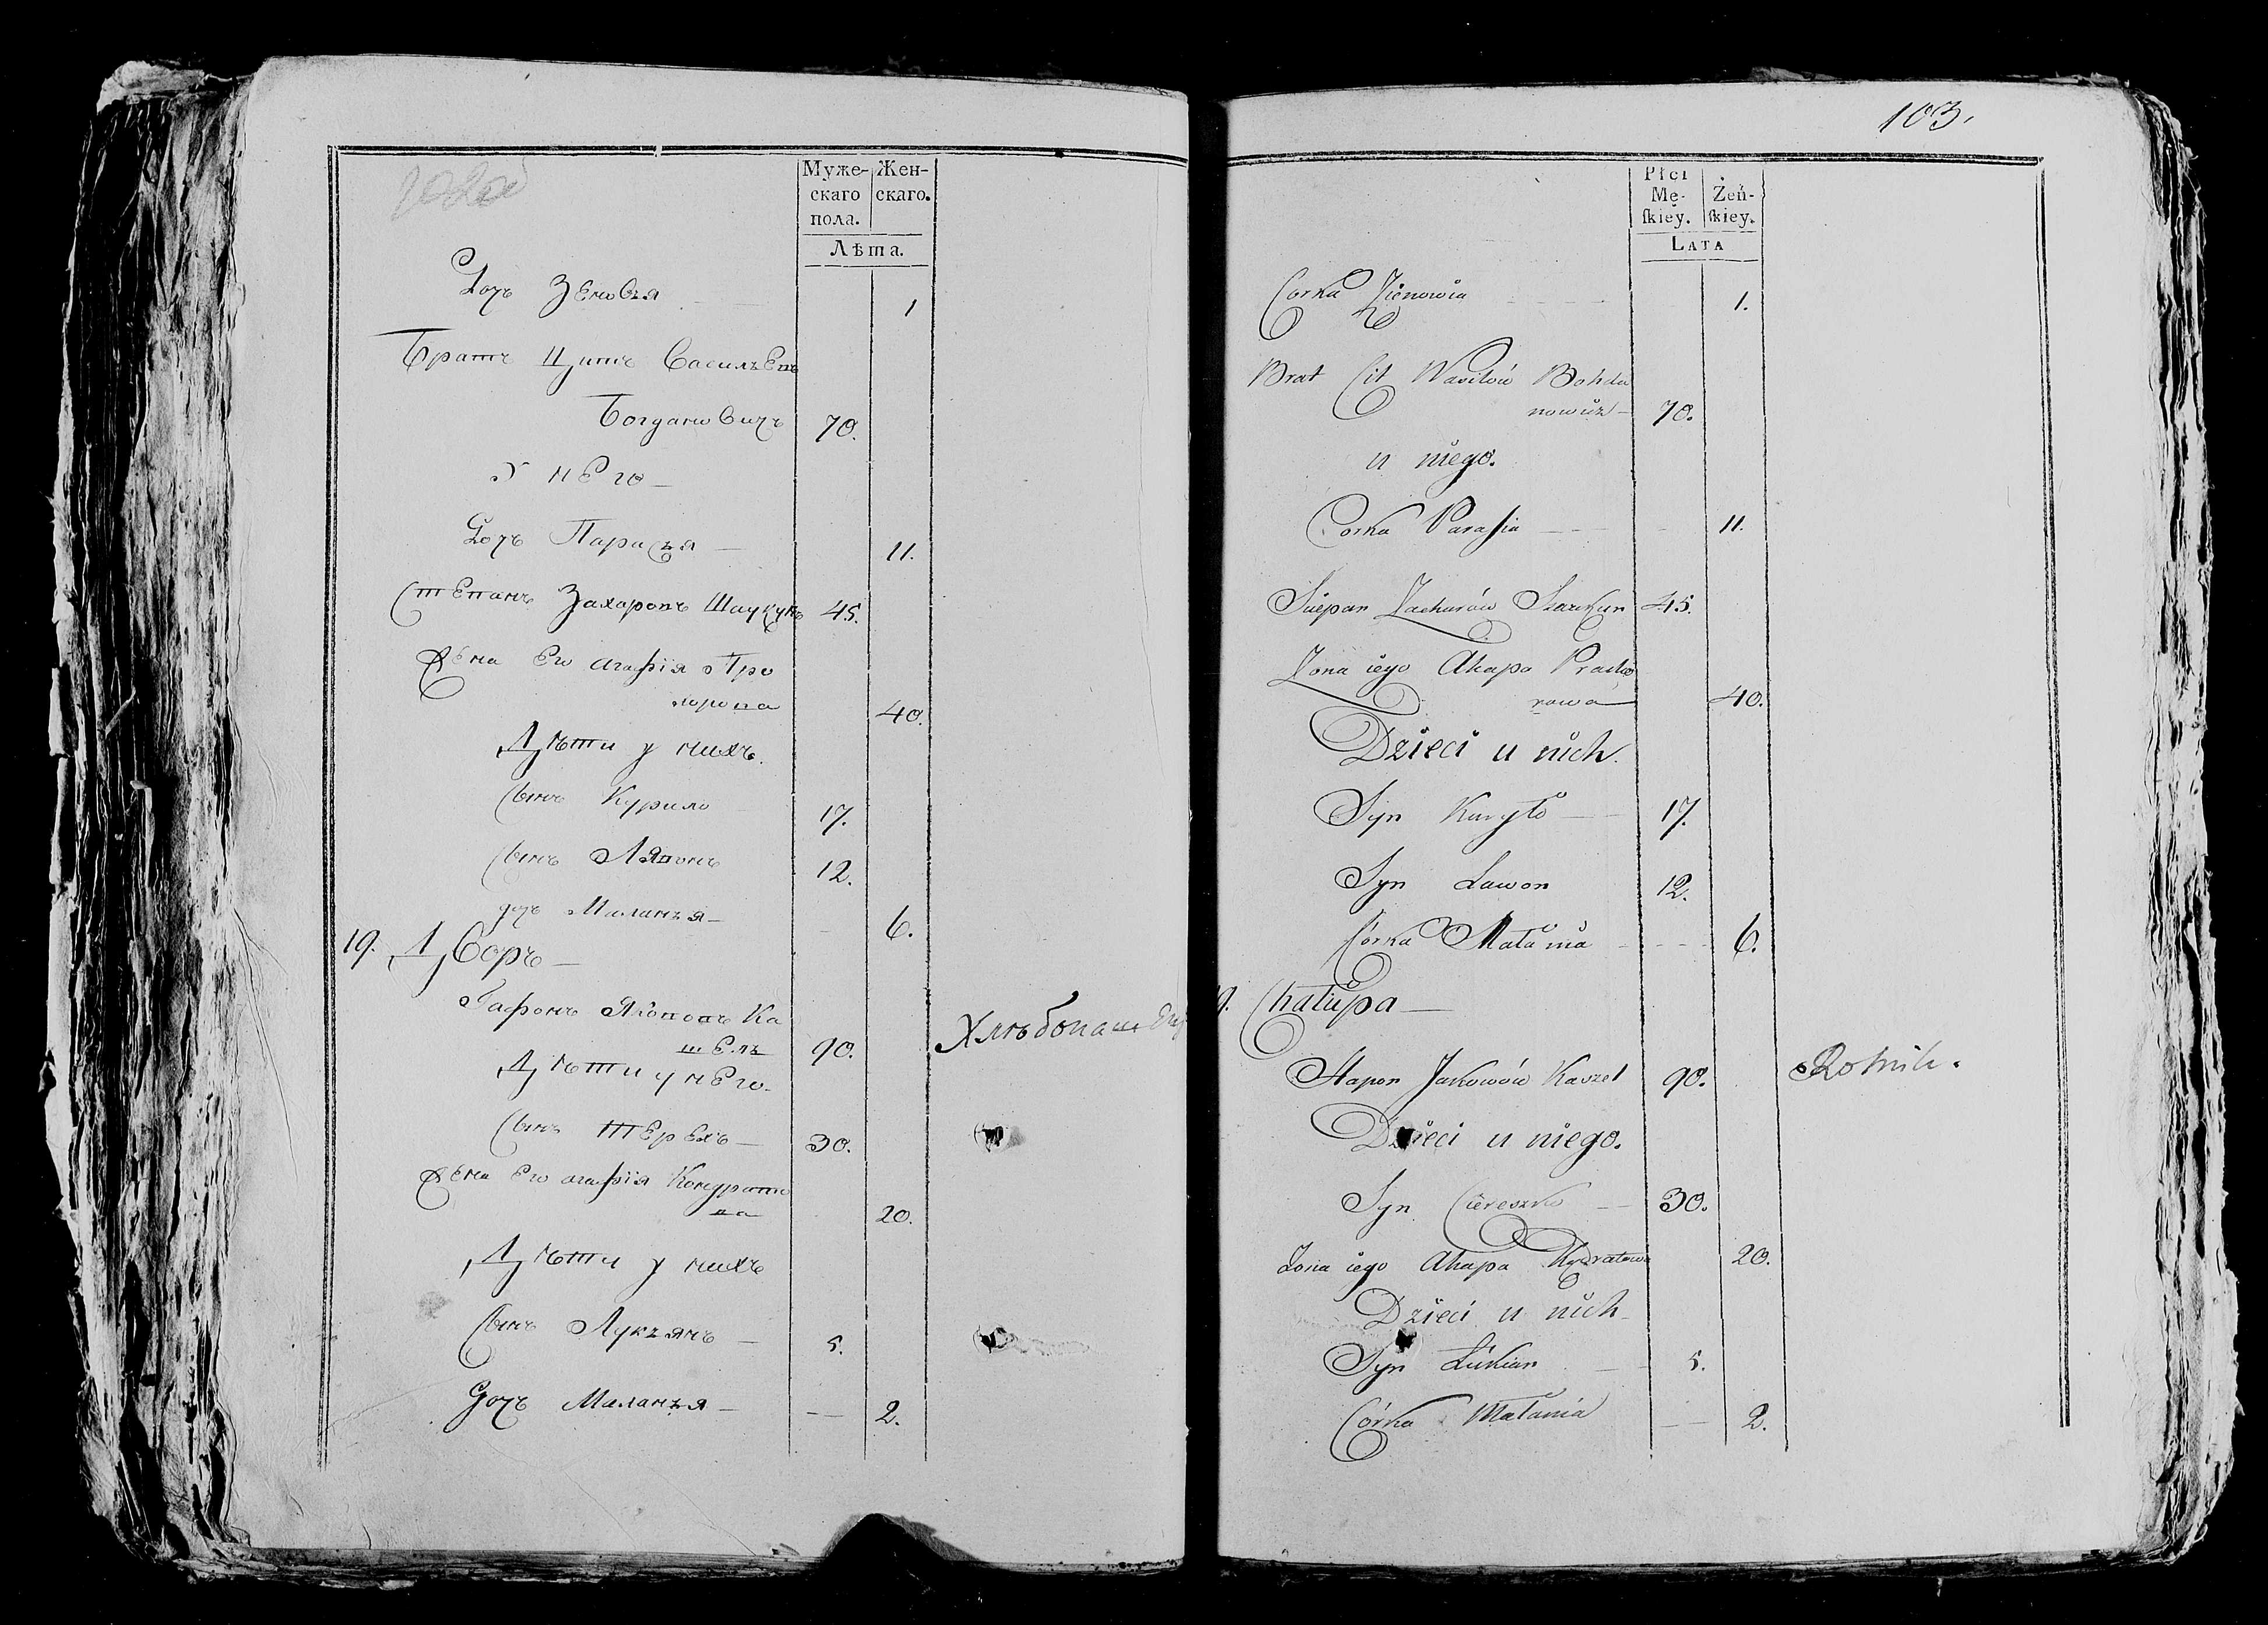 Муже-
скаго
пола.
Жен-
скаго.
Лѣта.
Дочь Зеновья 1
Братъ Цитъ Васильевъ
Богдановичъ 70.
У него
Дочь Парасья 11.
Степанъ Захаровъ Шаукунъ 45.
Жена его Агафія Про
хорова 40.
Дѣти у нихъ.
Сынъ Курило 17.
Сынъ Лявонъ 12.
дочь Маланья 6.
19. Дворъ
Гафонъ Якововъ Ка
шель 90. Хлѣбопашец
Дѣти у него.
Сынъ Терехъ 30.
Жена его Агафія Кондрато
ва 20.
Дѣти у нихъ
Сынъ Лукьянъ 5.
Дочь Маланья 2.
103.
Płci
Mę-
ſkiey.
Żeń-
ſkiey.
LATA
Corka Zienowia 1.
Brat Cit Wasilów Bohda
nowicz 70.
u niego.
Corka Parasia 11.
Sciepan Zacharów Szaukun 45.
Zona iego Ahapa Pracho
rowa 40.
Dzieci u nich.
Syn Kuryło 17.
Syn Lawon 12.
Córka Małania 6.
9. Chałupa
Hapon Jakowów Kaszel 90. Rolnik.
Dzieci u niego.
Syn Ciereszko 30.
Zona iego Ahapa Kodratowa 20.
Dzieci u nich
Syn Łukian 5.
Córka Małania 2.